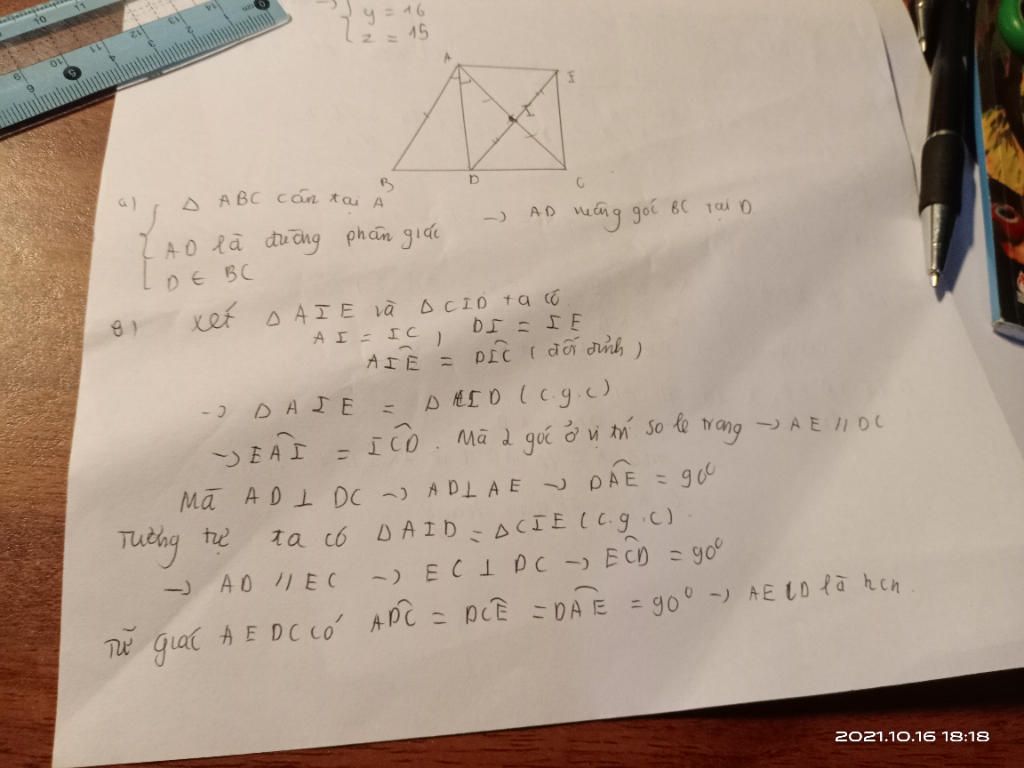 → { y = 16
z = 15
A
E
I
B
D
C
a) { Δ ABC cân tại A
AD là đường phân giác → AD vuông góc BC tại D
D ∈ BC
B) Xét Δ AIE và Δ CID ta có
AI = IC, DI = IE
AIE^ = DIC^ (đối đỉnh)
→ Δ AIE = Δ CID (c.g.c)
→ EAI^ = ICD^. Mà 2 góc ở vị trí so le trong → AE // DC
Mà AD ⊥ DC → AD ⊥ AE → DAE^ = 90°
Tương tự ta có ΔAID = ΔCIE (c.g.c).
→ AD // EC → EC ⊥ DC → ECD^ = 90°
Tứ giác AEDC có ADC^ = DCE^ = DAE^ = 90° → AECD là hcn.
10
11
12
13
14
0
1
2
3
5
6
9
2021.10.16 18:18